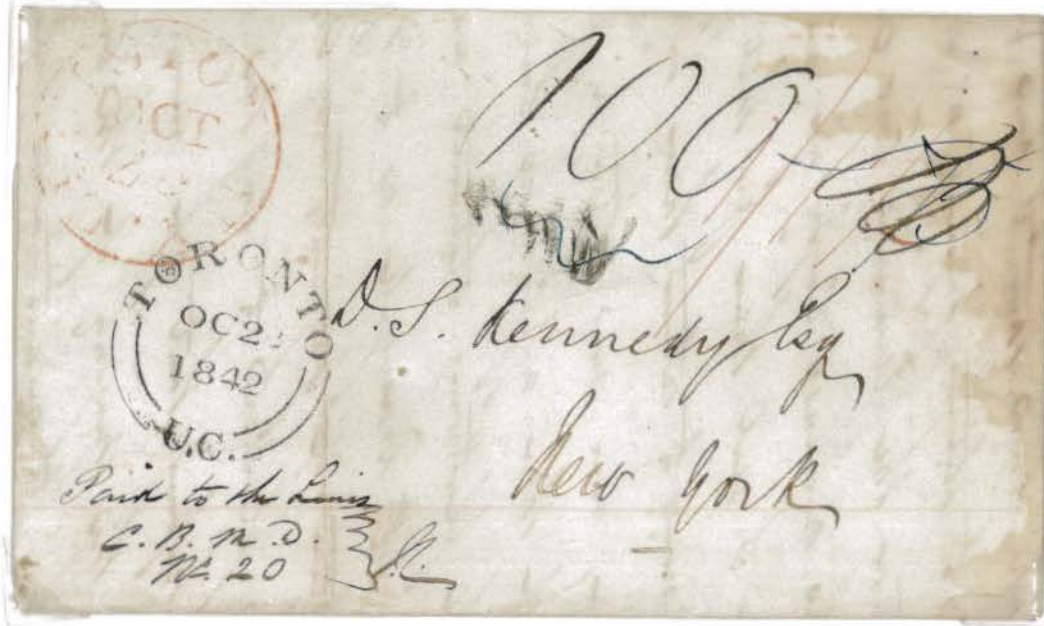 OCT
100
TORONTO
OC 2
1842
U.C.
D. S. Kennedy Esq
New York
Paid to the Lines
C. B. M. D.
No. 20